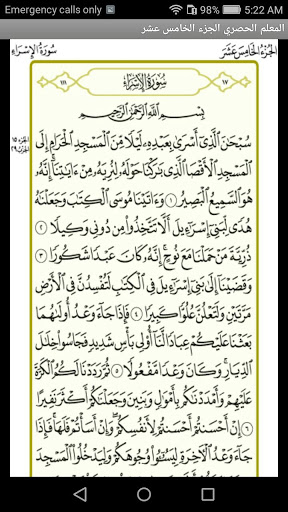 Emergency calls only 5:22 AM
المعلم الحصري الجزء الخامس عشر
الجُزْءُ الخَامِسَ عَشَرَ سُورَةُ الإِسْرَاءِ
١٧ سُورَةُ الإِسْرَاءِ ١١١
بِسْمِ ٱللَّهِ ٱلرَّحْمَٰنِ ٱلرَّحِيمِ
سُبْحَٰنَ ٱلَّذِىٓ أَسْرَىٰ بِعَبْدِهِۦ لَيْلًا مِّنَ ٱلْمَسْجِدِ ٱلْحَرَامِ إِلَى
ٱلْمَسْجِدِ ٱلْأَقْصَا ٱلَّذِى بَٰرَكْنَا حَوْلَهُۥ لِنُرِيَهُۥ مِنْ ءَايَٰتِنَآ إِنَّهُۥ
هُوَ ٱلسَّمِيعُ ٱلْبَصِيرُ ١ وَءَاتَيْنَا مُوسَى ٱلْكِتَٰبَ وَجَعَلْنَٰهُ
هُدًى لِّبَنِىٓ إِسْرَٰٓءِيلَ أَلَّا تَتَّخِذُوا۟ مِن دُونِى وَكِيلًا ٢
ذُرِّيَّةَ مَنْ حَمَلْنَا مَعَ نُوحٍ إِنَّهُۥ كَانَ عَبْدًا شَكُورًا ٣
وَقَضَيْنَآ إِلَىٰ بَنِىٓ إِسْرَٰٓءِيلَ فِى ٱلْكِتَٰبِ لَتُفْسِدُنَّ فِى ٱلْأَرْضِ
مَرَّتَيْنِ وَلَتَعْلُنَّ عُلُوًّا كَبِيرًا ٤ فَإِذَا جَآءَ وَعْدُ أُولَىٰهُمَا
بَعَثْنَا عَلَيْكُمْ عِبَادًا لَّنَآ أُو۟لِى بَأْسٍ شَدِيدٍ فَجَاسُوا۟ خِلَٰلَ
ٱلدِّيَارِ وَكَانَ وَعْدًا مَّفْعُولًا ٥ ثُمَّ رَدَدْنَا لَكُمُ ٱلْكَرَّةَ
عَلَيْهِمْ وَأَمْدَدْنَٰكُم بِأَمْوَٰلٍ وَبَنِينَ وَجَعَلْنَٰكُمْ أَكْثَرَ نَفِيرًا
٦ إِنْ أَحْسَنتُمْ أَحْسَنتُمْ لِأَنفُسِكُمْ وَإِنْ أَسَأْتُمْ فَلَهَا فَإِذَا
جَآءَ وَعْدُ ٱلْءَاخِرَةِ لِيَسُۥٓـُٔوا۟ وُجُوهَكُمْ وَلِيَدْخُلُوا۟
ٱلْمَسْجِدَ كَمَا دَخَلُوهُ أَوَّلَ مَرَّةٍ